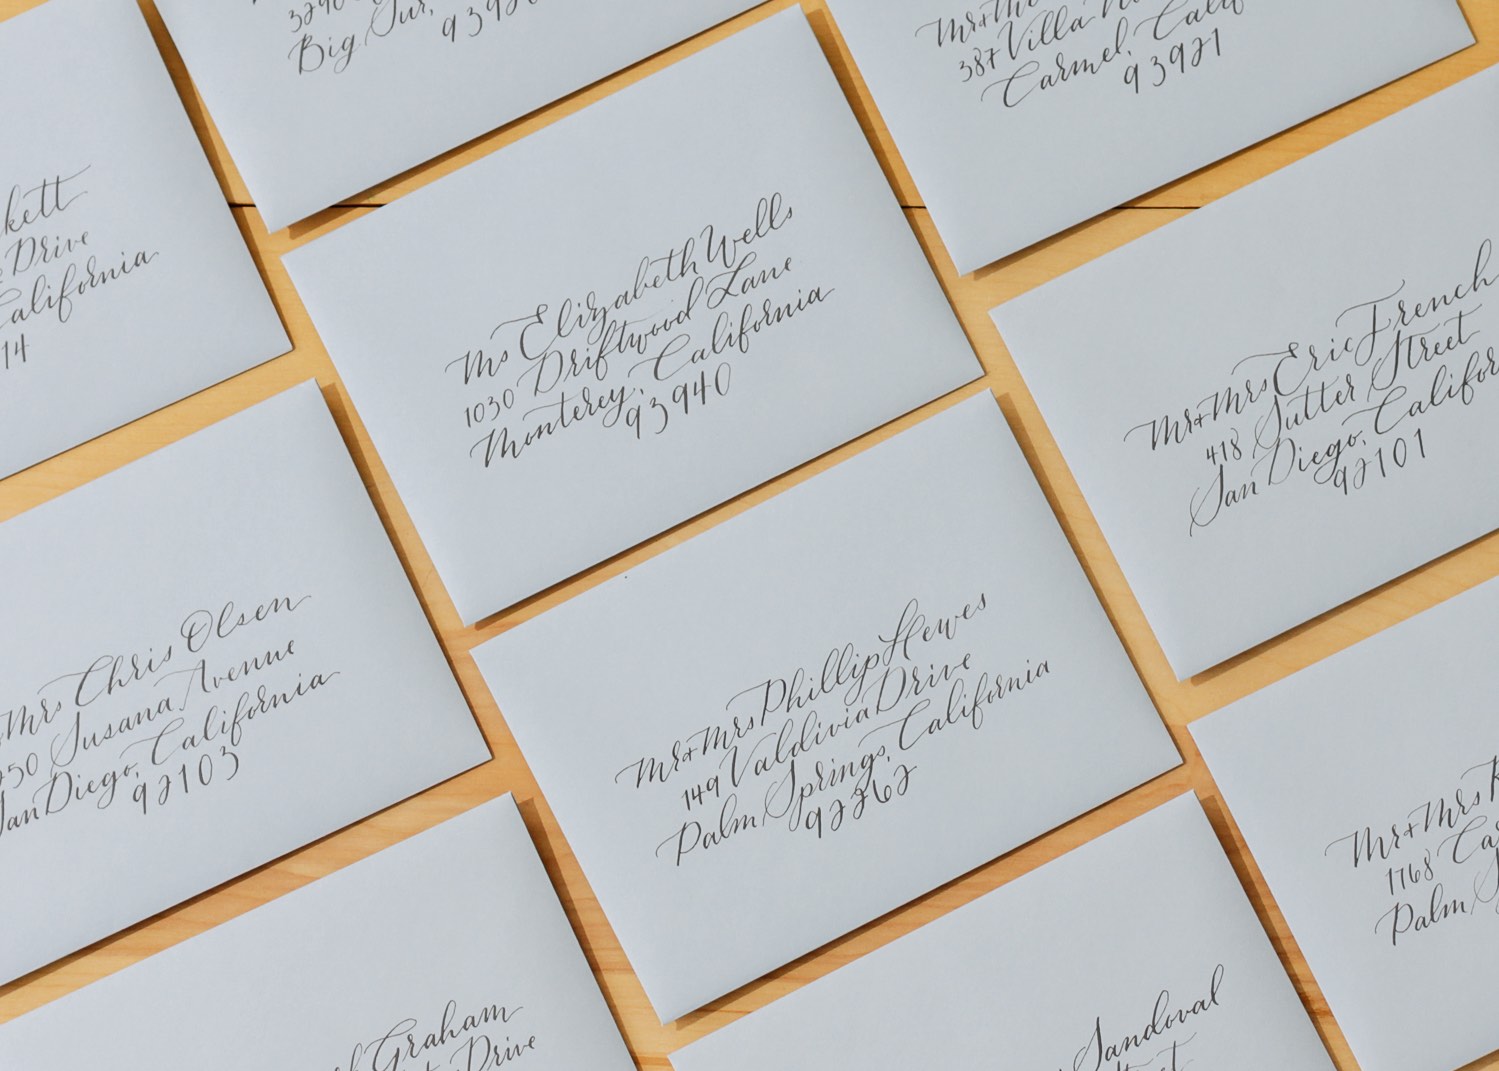 Big Sur,
387 Villa
Carmel, Calif
93921
Drive
California
14
Ms Elizabeth Wells
1030 Driftwood Lane
Monterey, California
93940
Mr + Mrs Eric French
418 Sutter Street
San Diego, Califor
92101
Mrs Chris Olsen
50 Susana Avenue
San Diego, California
92103
Mr + Mrs Phillip Hewes
149 Valdivia Drive
Palm Springs, California
92262
Mr + Mrs
1768
Palm
Graham
Drive
Sandoval